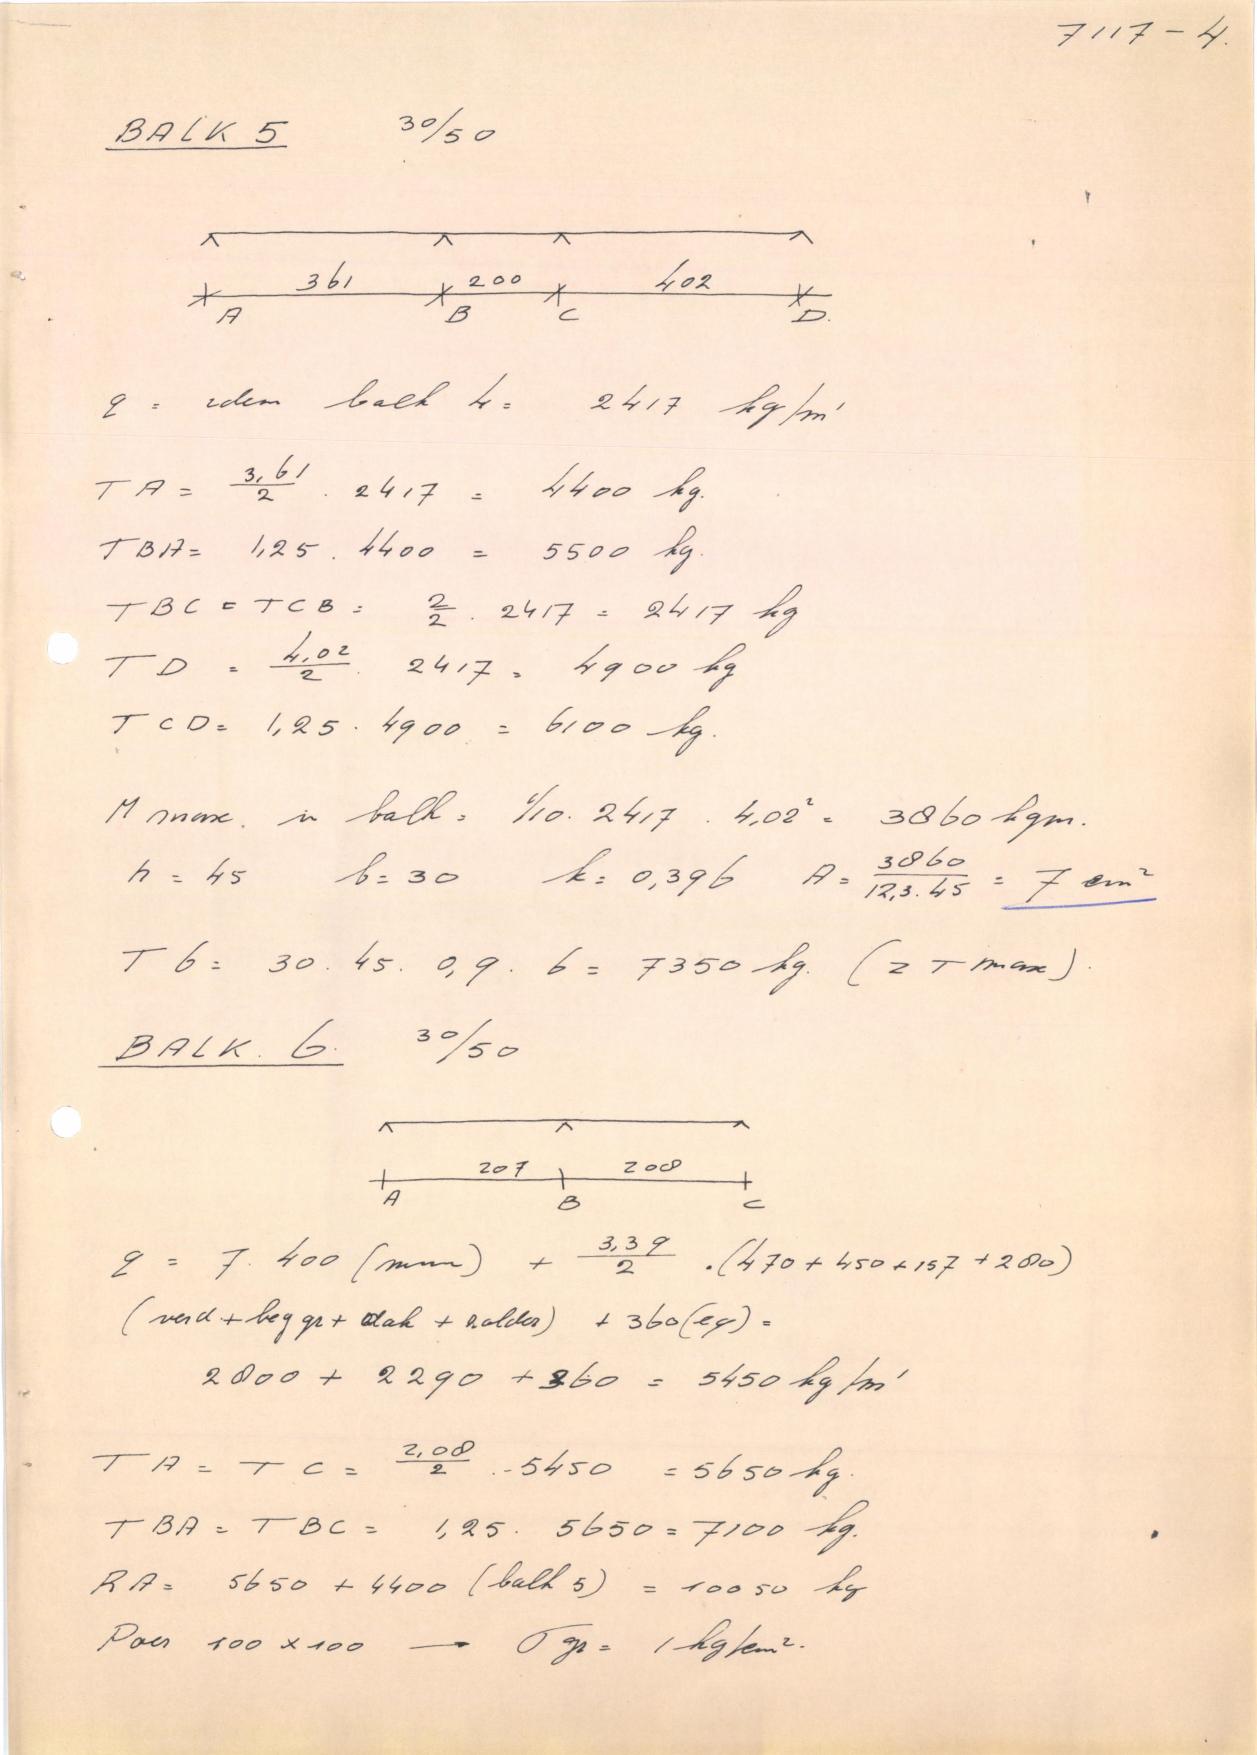 7117-4.
BALK 5 30/50
361 200 402
A B C D.
q = idem balk 4 = 2417 kg/m'
TA = 3,61/2 . 2417 = 4400 kg.
TBA = 1,25 . 4400 = 5500 kg.
TBC = TCB = 2/2 . 2417 = 2417 kg
TD = 4,02/2 . 2417 = 4900 kg
TCD = 1,25 . 4900 = 6100 kg.
M max. in balk = 1/10 . 2417 . 4,02² = 3860 kgm.
h = 45 b = 30 k = 0,396 A = 3860/12,3.45 = 7 cm²
Tb = 30 . 45 . 0,9 . 6 = 7350 kg. (> T max).
BALK. 6. 30/50
207 208
A B C
q = 7.400 (muur) + 3,39/2 . (470 + 450 + 157 + 280)
(verd + beg gr + dak + zolder) + 360 (eg) =
2800 + 2290 + 360 = 5450 kg/m'
TA = TC = 2,08/2 . 5450 = 5650 kg.
TBA = TBC = 1,25 . 5650 = 7100 kg.
RA = 5650 + 4400 (balk 5) = 10050 kg
Poer 100 x 100 → σgr = 1 kg/cm².